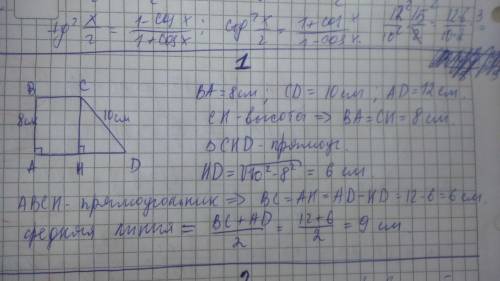 tg² x/2 = 1-cos x / 1+cos x ; ctg² x/2 = 1+cos x / 1-cos x.
1
B C
8см 10см
A H D
BA=8см; CD=10см; AD=12см.
CH-высоты => BA=CH=8см.
△CHD-прямоуг.
HD=√10²-8² = 6 см
ABCH-прямоугольник => BC=AH=AD-HD=12-6=6см.
средняя линия = BC+AD / 2 = 12+6 / 2 = 9 см
2